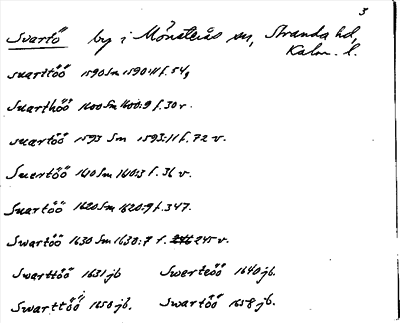 3
Svartö by i Mönsterås sn, Stranda hd, Kalm. l.
suarttöö 1590 Sm 1590:11 f. 54,
Suarthöö 1600 Sm 1600:9 f. 30 r.
suartöö 1593 Sm 1593:11 f. 72 v.
Suertöö 1610 Sm 1610:3 f. 36 v.
Suartöö 1620 Sm 1620:9 f. 347.
Swartöö 1630 Sm 1630:7 f. 245 v.
Swarttöö 1631 jb Swerteöö 1640 jb.
Swarttöö 1650 jb. Swartöö 1658 jb.